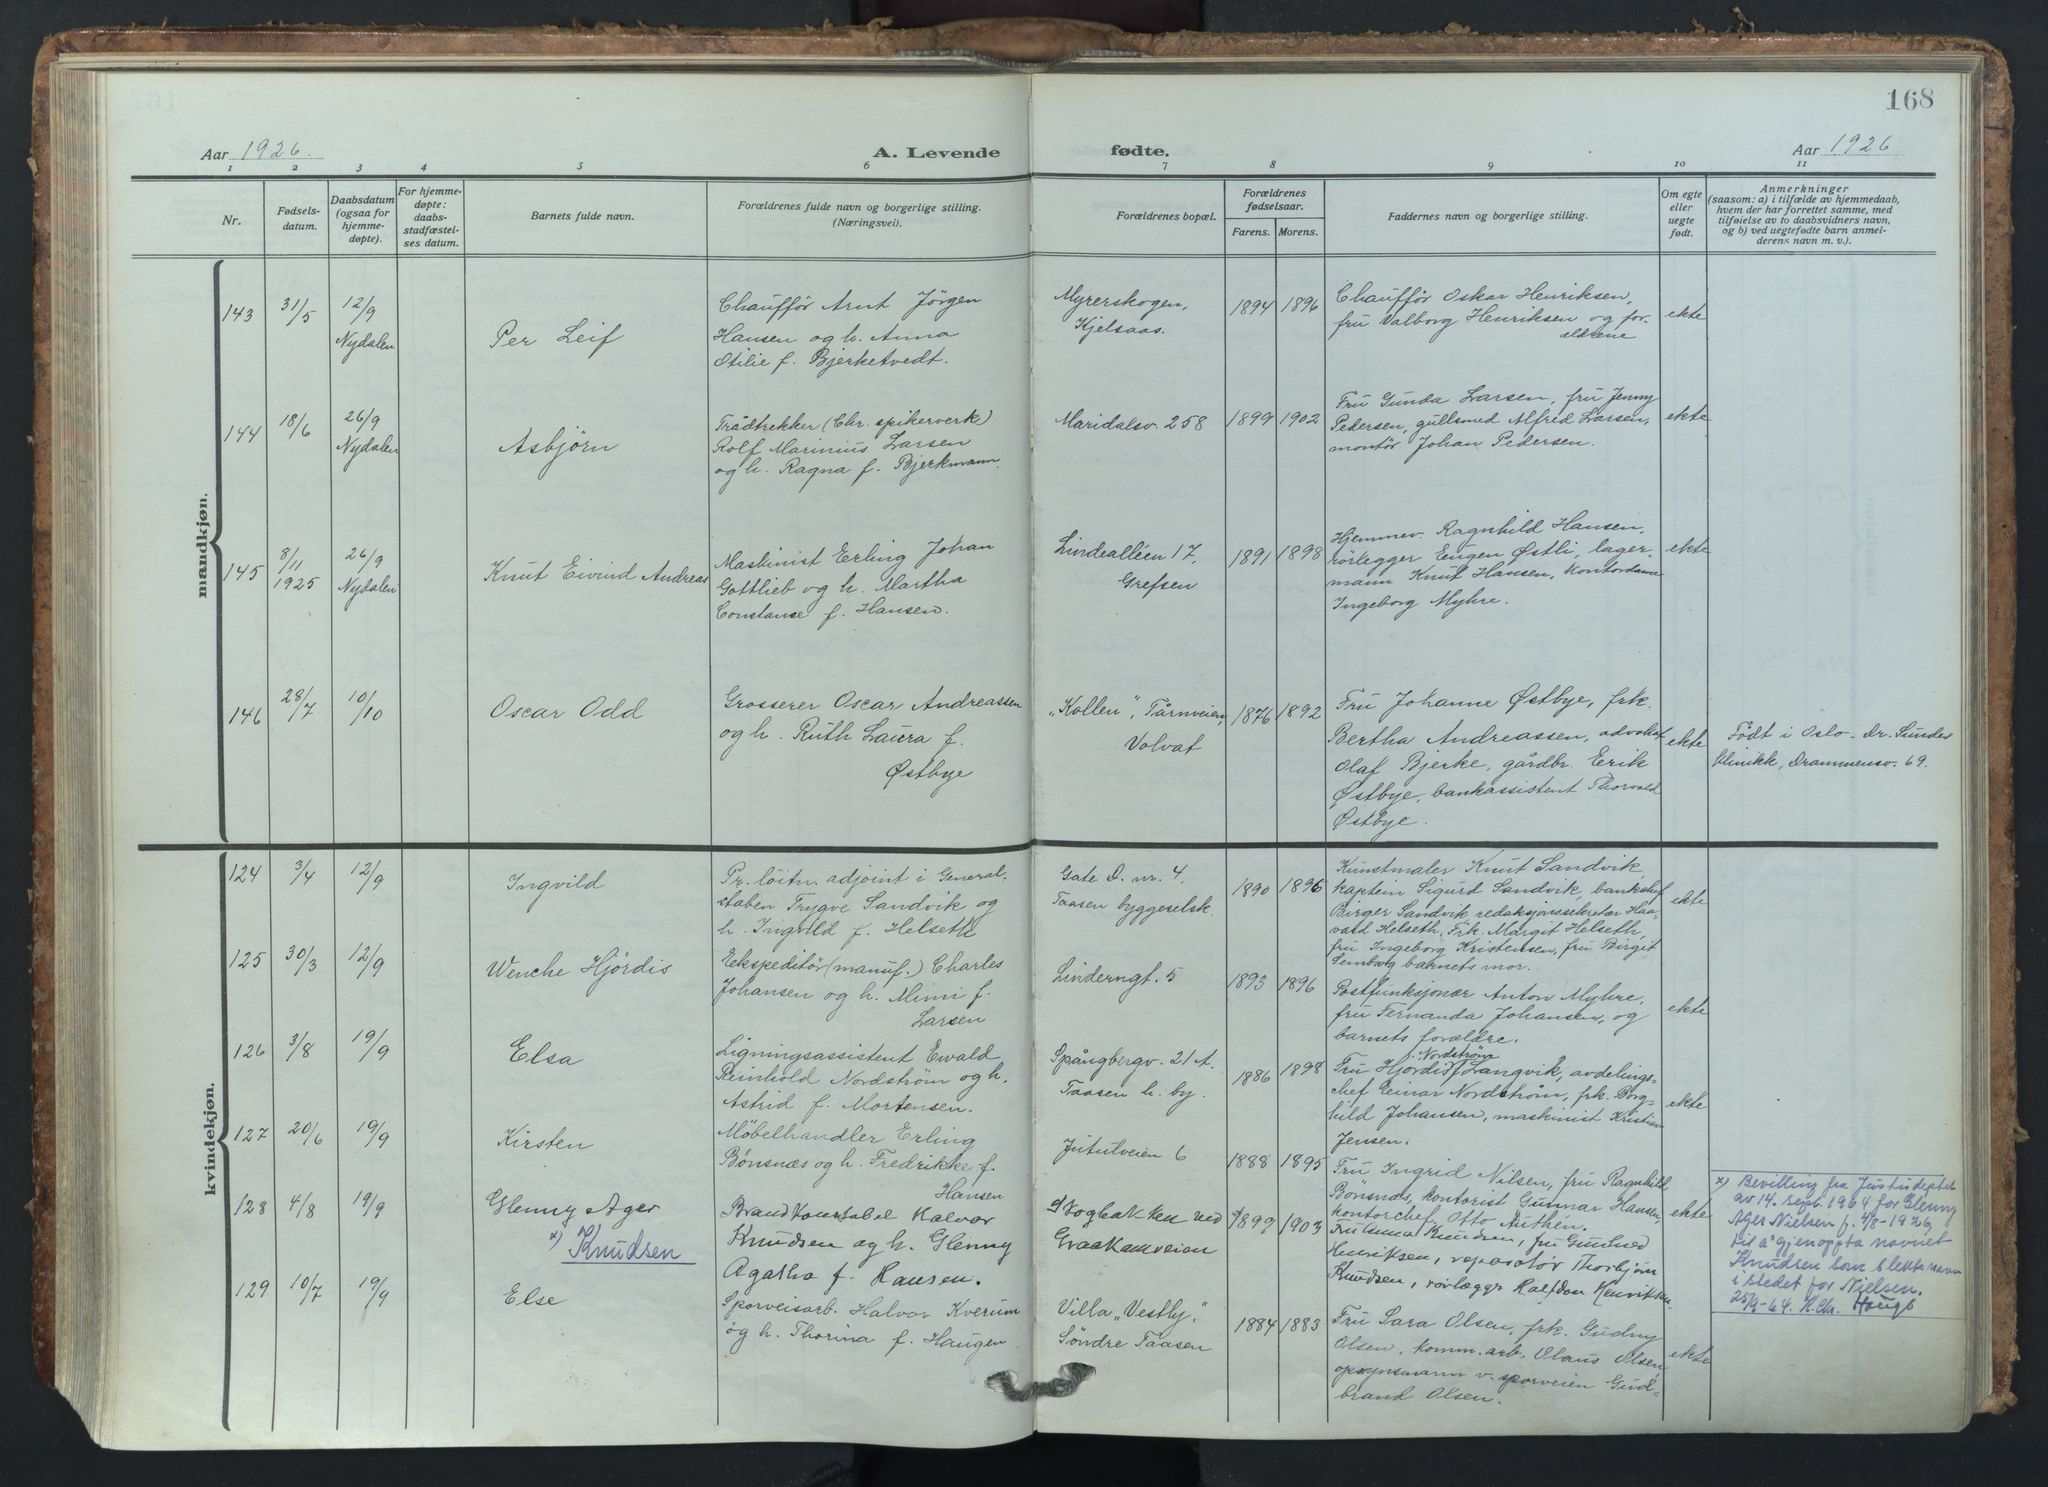 168
Aar 1926.
A. Levende
fødte.
Aar 1926
1 2 3 4 5 6 7 8 9 10 11
Nr.
Fødsels-
datum.
Daabsdatum
(ogsaa for
hjemme-
døpte).
For hjemme-
døpte:
daabs-
stadfæstel-
ses datum.
Barnets fulde navn.
Forældrenes fulde navn og borgerlige stilling.
(Næringsvei).
Forældrenes bopæl.
Forældrenes
fødselsaar.
Farens. Morens.
Faddernes navn og borgerlige stilling.
Om egte
eller
uegte
født.
Anmerkninger
(saasom: a) i tilfælde av hjemmedaab,
hvem der har forrettet samme, med
tilføielse av to daabsvidners navn,
og b) ved uegtefødte barn anmel-
derens navn m. v.).
mandkjøn.
143
31/5
12/9
Nydalen
Per Leif
Chauffør Arnt Jörgen
Hansen og h. Anna
Otilie f. Bjerketvedt.
Myrerskogen,
Kjelsaas.
1894 1896
Chauffør Oskar Henriksen,
fru Valborg Henriksen og for-
ældrene
ekte
144
18/6
26/9
Nydalen
Asbjörn
Trådtrekker (Chr. spikerverk)
Rolf Marinius Larsen
og h. Ragna f. Bjerkmann.
Maridalsv. 258
1899 1902
Fru Gunda Larsen, fru Jenny
Pedersen, gullsmed Alfred Larsen,
montör Johan Pedersen.
ekte
145
8/11
1925
26/9
Nydalen
Knut Eivind Andreas
Maskinist Erling Johan
Gottlieb og h. Martha
Constanse f. Hansen.
Lindealléen 17,
Grefsen
1891 1898
Hjemmev. Ragnhild Hansen,
rörlegger Eugen Østli, lager-
mann Knut Hansen, kontordame
Ingeborg Myhre.
ekte
146
28/7
10/10
Oscar Odd
Grosserer Oscar Andreassen
og h. Ruth Laura f.
Østbye
"Kollen", Tårnveien,
Volvat
1876 1892
Fru Johanne Østbye, frk.
Bertha Andreassen, advokat
Olaf Bjerke, gårdbr. Erik
Østbye, bankassistent Thorvald
Østbye.
ekte
Födt i Oslo - Dr. Sundes
klinikk, Drammensv. 69.
kvindekjøn.
124
3/4
12/9
Ingvild
Pr. löitn. adjoint i General-
staben Trygve Sandvik og
h. Ingvild f. Helseth
Gate D. nr. 4,
Taasen byggeselsk.
1890 1896
Kunstmaler Knut Sandvik,
kaptein Sigurd Sandvik, banksjef
Birger Sandvik redaksjonssekretær Haa-
vald Helseth, Frk. Margit Helseth,
fru Ingeborg Kristensen, fru Birgit
Semborg barnets mor.
ekte
125
30/3
12/9
Wenche Hjördis
Ekspeditör (manuf.) Charles
Johansen og h. Mimi f.
Larsen
Linderngt. 5
1893 1896
Postfunksjonær Anton Myhre,
fru Fernanda Johansen, og
barnets forældre.
ekte
126
3/8
19/9
Elsa
Ligningsassistent Ewald
Reinhold Nordström og h.
Astrid f. Mortensen.
Spångbergv. 21 A.
Taasen h. by.
1886 1898
Nordström
Fru Hjördis Langvik, avdelings-
chef Einar Nordström, frk. Borg-
hild Johansen, maskinist Kristian
Jensen.
ekte
127
20/6
19/9
Kirsten
Möbelhandler Erling
Bönsnæs og h. Fredrikke f.
Hansen
Jutulveien 6
1888 1895
Fru Ingrid Nilsen, fru Ragnhild
Bönsnæs, kontorist Gunnar Hansen,
kontorchef Otto Authen.
ekte
128
4/8
19/9
Glenny Ager
x) Knudsen
Brandkonstabel Halvor
Knudsen og h. Glenny
Agatha f. Hansen.
Skogbakken ved
Graakamveien
1899 1903
Fru Anna Knudsen, fru Gunhild
Henriksen, reparatör Thorbjörn
Knudsen, rörlegger Halfdan Henriksen.
x) Bevilling fra Justisdeptet
av 14. sept. 1964 for Glenny
Ager Nielsen f. 4/8-1926,
til å gjenoppta navnet
Knudsen som slektsnavn
i stedet for Nielsen.
25/9-64. H. Chr. Hauge
129
10/7
19/9
Else
Sporveisarb. Halvor Kverum
og h. Thorina f. Haugen
Villa "Vestby",
Söndre Taasen
1884 1883
Fru Sara Olsen, frk. Gudny
Olsen, komm.arb. Claus Olsen,
opsynsmann v. sporveien Gud-
brand Olsen.
ekte